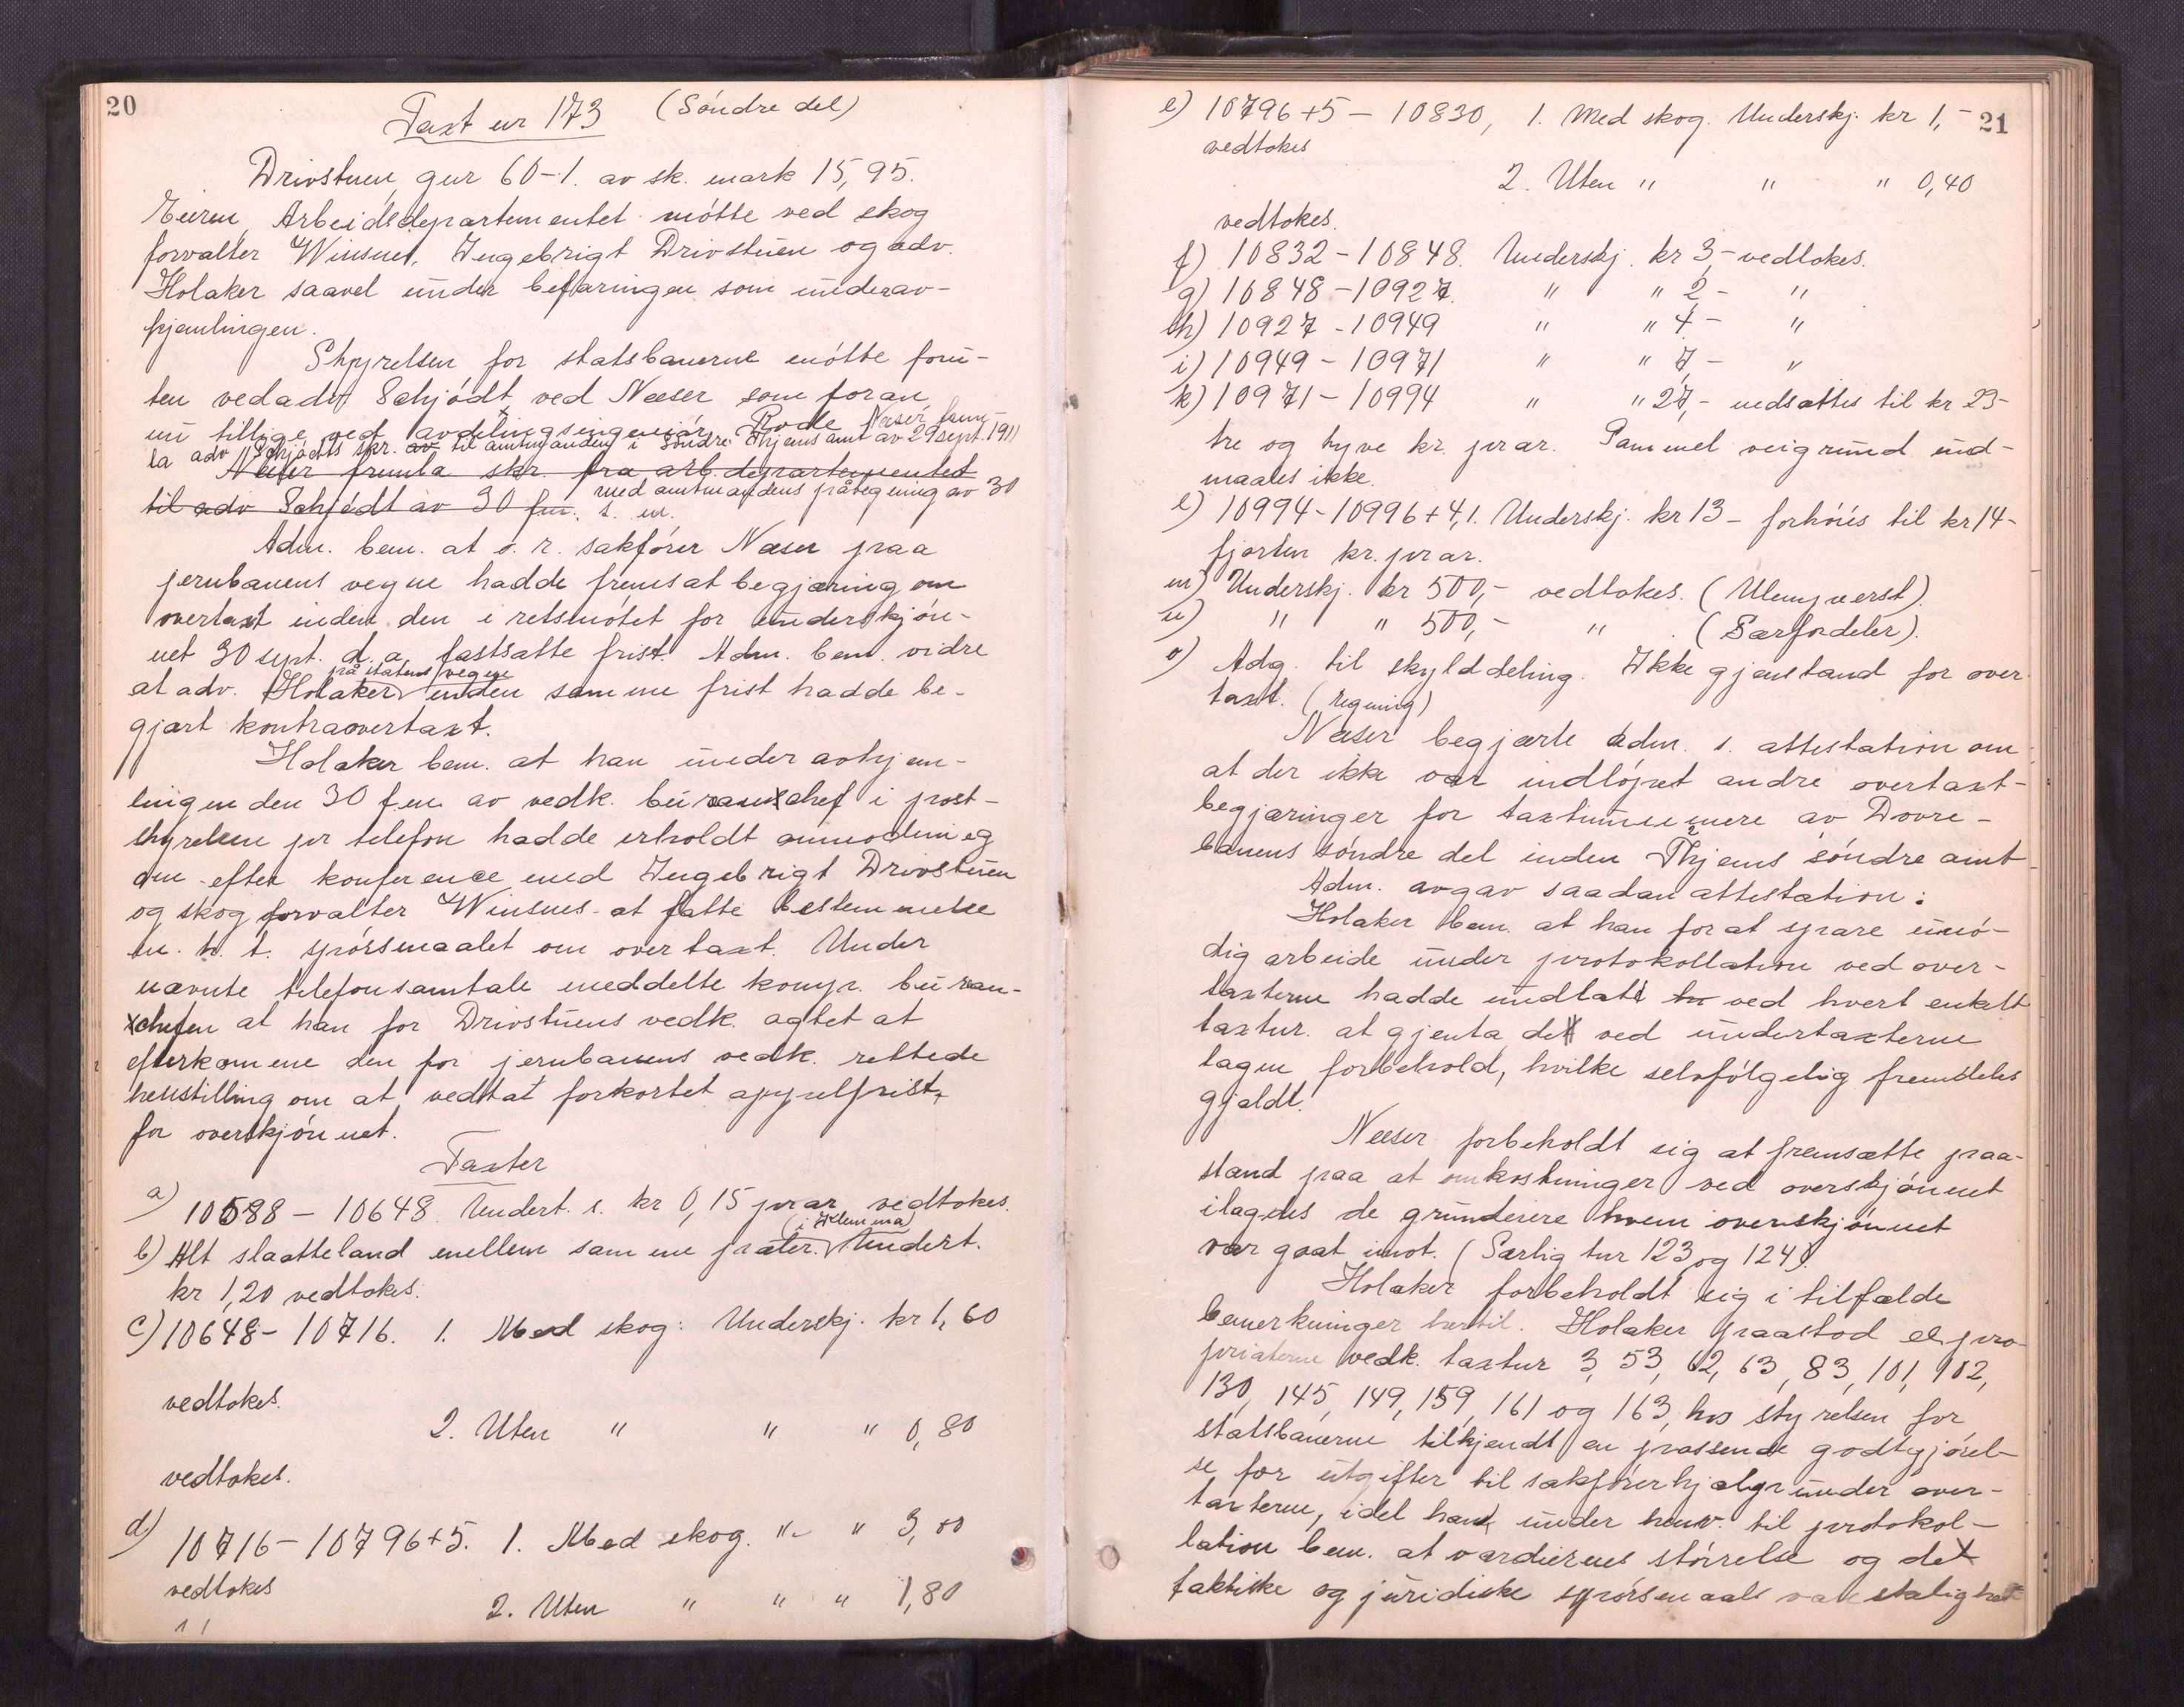 20
Taxt nr 173 (Söndre del)
Drivstuen, gnr 60-1. av sk. mark 15,95.
Eieren, Arbeidsdepartementet mötte ved skog
forvalter Winsnes, Ingebrigt Drivstuen og adv.
Holaker saavel under befaringen som under av-
hjemlingen.
Styrelsen for statsbanerne mötte foru-
ten ved adv Schjödt, ved Næser som foran,
nu tillige ved avdelingsingeniör Rode. Næser frem-
la adv Schjödts skr. av til amtmanden i Söndre Thjems amt av 29 sept. 1911
Næser fremla skr. fra arb. departementet
med amtmandens påtegning av 30
til adv Schjödt av 30 f.m. s. m.
Adm. bem. at o. r. sakförer Næser paa
jernbanens vegne hadde fremsat begjæring om
overtaxt inden den i retsmötet for underskjön-
net 30 sept. d. a. fastsatte frist. Adm. bem. vidre
på statens vegne
at adv. Holaker inden samme frist hadde be-
gjært kontraovertaxt.
Holaker bem. at han under avhjem-
lingen den 30 f.m. av vedk. bureauchef i post-
styrelsen pr telefon hadde erholdt anmodning
om efter konference med Ingebrigt Drivstuen
og skogforvalter Winsnes at fatte bestemmelse
m. h. t. spörsmaalet om overtaxt. Under
nævnte telefonsamtale meddelte komp. bureau-
chefen at han for Drivstuens vedk. agtet at
efterkomme den for jernbanens vedk. rettede
henstilling om at vedtat forkortet appelfrist
for overskjönnet.
Taxter
a) 10588 - 10648. Undert. s. kr 0,15 pr ar vedtokes.
(i Klemma)
b) Alt slaatteland mellem samme pæler. Undert.
kr 1,20 vedtokes.
c) 10648 - 10716. 1. Med skog: Underskj. kr 1,60
vedtokes.
2. Uten " " " 0,80
vedtokes.
d) 10716 - 10796+5. 1. Med skog. " " 3,00
vedtokes
2. Uten " " " 1,80
" 
21
e) 10796+5 - 10830, 1. Med skog. Underskj. kr 1,-
vedtokes
2. Uten " " " 0,40
vedtokes.
f) 10832 - 10848. Underskj. kr 3,- vedtokes.
g) 10848 - 10927. " " 2 - "
h) 10927 - 10949 " " 4 - "
i) 10949 - 10971 " " 7 - "
k) 10971 - 10994 " " 27,- nedsattes til kr 23-
tre og tyve kr. pr ar. Gammel veigrund ind-
maales ikke.
l) 10994 - 10996+4,1. Underskj. kr 13 - forhöies til kr 14-
fjorten kr. pr ar.
m) Underskj. kr 500,- vedtokes. (Ulempeerst).
n) " " 500,- " . (Særfordeler).
o) Adg. til skylddeling. Ikke gjenstand for over
taxt. (regning)
Næser begjærte adm. s. attestation om
at der ikke var indlöpet andre overtaxt-
begjæringer for taxtnummere av Dovre-
banens söndre del inden Thjems söndre amt.
Adm. avgav saadan attestation.
Holaker bem. at han for at spare unö-
dig arbeide under protokollation ved over-
taxterne hadde undlatt ved hvert enkelt
taxtnr. at gjenta det ved undertaxterne
tagne forbehold, hvilke selvfölgelig fremdeles
gjaldt.
Næser forbeholdt sig at fremsætte paa-
stand paa at omkostninger ved overskjönnet
ilagdes de grundeiere hvem overskjönnet
var gaat imot. (Særlig tnr 123 og 124).
Holaker forbeholdt sig i tilfælde
bemerkninger hertil. Holaker paastod expro-
priaterne vedk. taxtnr 3, 53, 62, 63, 83, 101, 102,
130, 145, 149, 159, 161 og 163, hos styrelsen for
statsbanerne tilkjendt en passende godtgjörel-
se for utgifter til sakförerhjelp under over-
taxterne, idet han under henv. til protokol-
lation bem. at værdiernes störrelse og det
faktiske og juridiske spörsmaals vanskelighet